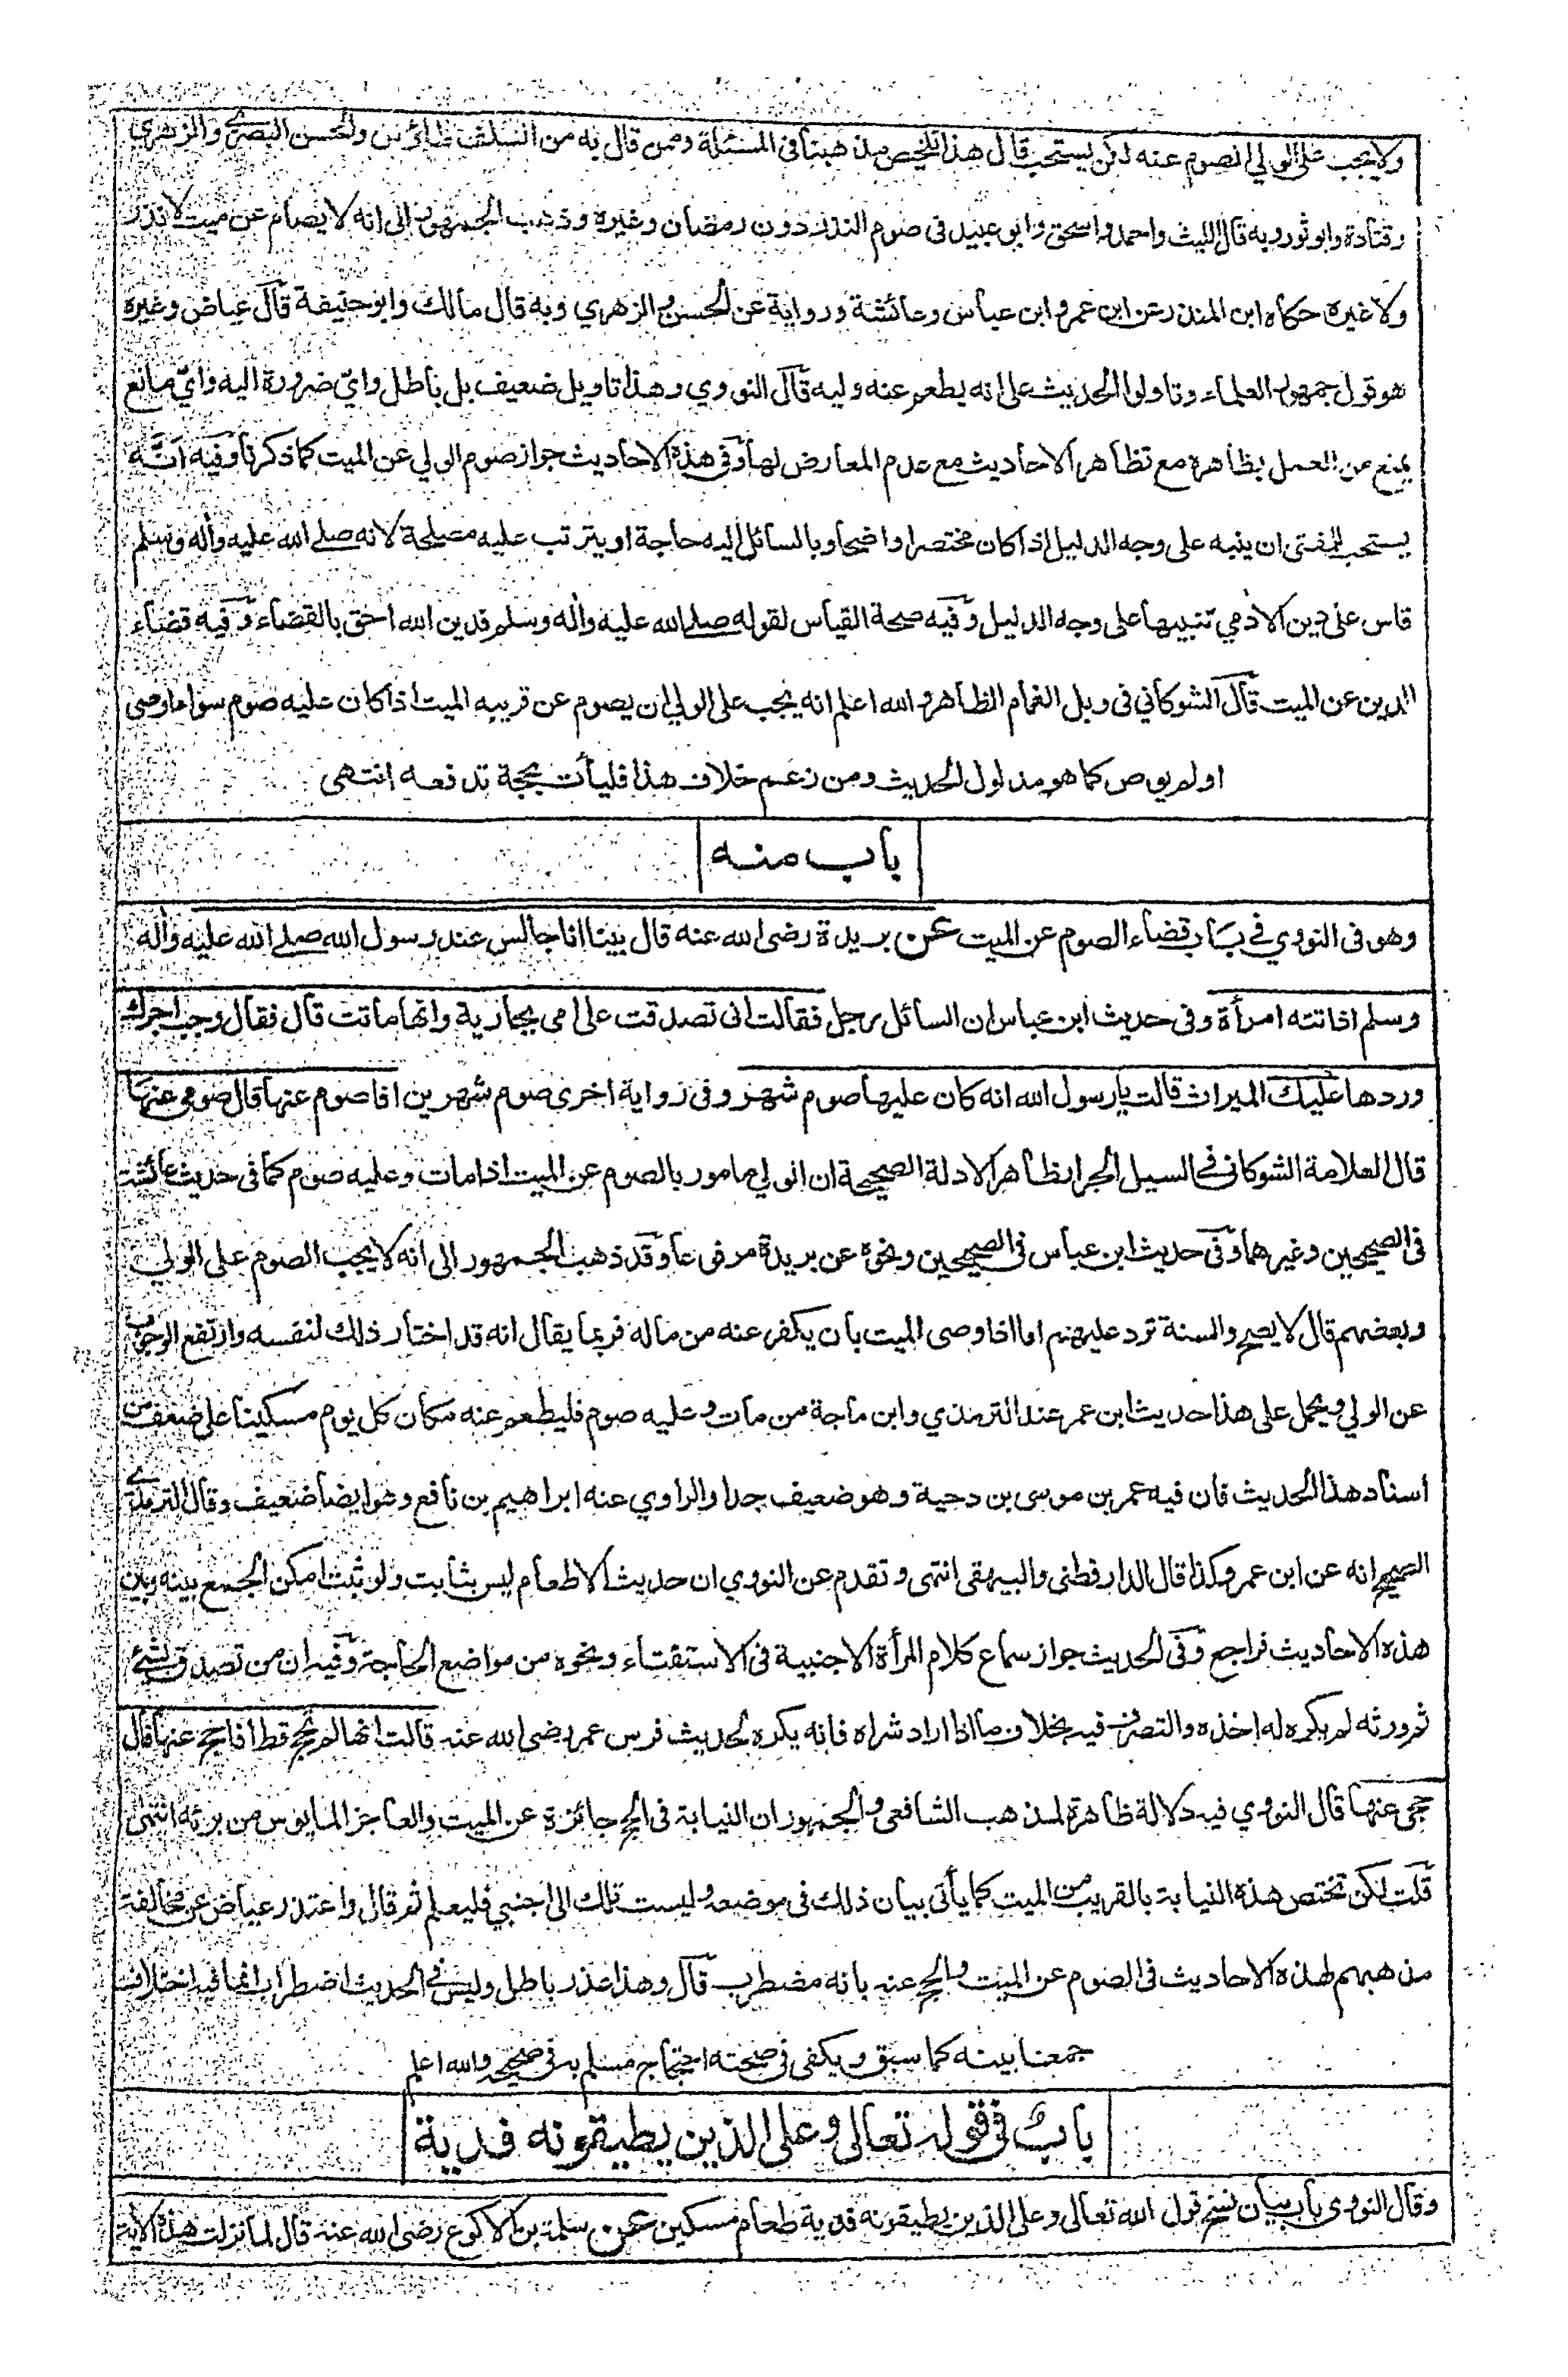 ولا يجب على الولي الصوم عنه لكن يستحب قال هذا تلخيص مذهبنا فى المسئلة وممن قال به من السلف طاؤس والحسن البصري والزهري
وقتادة وابو ثور وبه قال الليث واحمد واسحق وابو عبيد فى صوم النذر دون رمضان وغيره وذهب الجمهور الى انه لا يصام عن ميت لا نذر
ولا غيره حكاه ابن المنذر عن ابن عمر وابن عباس وعائشة ورواية عن الحسن والزهري وبه قال مالك وابو حنيفة قال عياض وغيره
هو قول جمهور العلماء وتاولوا الحديث على انه يطعم عنه وليه قال النووي وهذا تاويل ضعيف بل باطل واي ضرورة اليه واي مانع
يمنع من العمل بظاهره مع تظاهر الاحاديث مع عدم المعارض لها وفى هذه الاحاديث جواز صوم الولي عن الميت كما ذكرنا وفيه انه
يستحب للمفتى ان ينبه على وجه الدليل اذا كان مختصرا واضحا وبالسائل اليه حاجة او يترتب عليه مصلحة لانه صلى الله عليه واله وسلم
قاس على دين الادمي تنبيها على وجه الدليل وفيه صحة القياس لقوله صلى الله عليه واله وسلم فدين الله احق بالقضاء وفيه قضاء
الدين عن الميت قال الشوكاني فى وبل الغمام الظاهر والله اعلم انه يجب على الولي ان يصوم عن قريبه الميت اذا كان عليه صوم سواء اوصى
او لم يوص كما هو مدلول الحديث ومن زعم خلاف هذا فليأت بحجة تدفعه انتهى
باب منه
وهو فى النووي في باب قضاء الصوم عن الميت عن بريدة رضى الله عنه قال بينا انا جالس عند رسول الله صلى الله عليه واله
وسلم اذ اتته امرأة وفى حديث ابن عباس ان السائل رجل فقالت انى تصدقت على امى بجارية وانها ماتت قال فقال وجب اجرك
وردها عليك الميراث قالت يا رسول الله انه كان عليها صوم شهر وفى رواية اخرى صوم شهرين افاصوم عنها قال صومى عنها
قال العلامة الشوكانى في السيل الجرار ظاهر الادلة الصحيحة ان الولي مامور بالصوم عن الميت اذا مات وعليه صوم كما فى حديث عائشة
فى الصحيحين وغيرهما وفى حديث ابن عباس فى الصحيحين ونحوه عن بريدة مرفوعا وقد ذهب الجمهور الى انه لا يجب الصوم على الولي
وبعضهم قال لا يصح والسنة ترد عليهم اما اذا اوصى الميت بان يكفر عنه من ماله فربما يقال انه قد اختار ذلك لنفسه وارتفع الوجوب
عن الولي ويحمل على هذا حديث ابن عمر عند الترمذي وابن ماجة من مات وعليه صوم فليطعم عنه مكان كل يوم مسكينا على ضعف من
اسناد هذا الحديث فان فيه عمر بن موسى بن دحية وهو ضعيف جدا والراوي عنه ابراهيم بن نافع وهو ايضا ضعيف وقال الترمذي
الصحيح انه عن ابن عمر وكذا قال الدارقطنى والبيهقى انتهى وتقدم عن النووي ان حديث الاطعام ليس بثابت ولو ثبت امكن الجمع بينه وبين
هذه الاحاديث فراجع وفى الحديث جواز سماع كلام المرأة الاجنبية فى الاستفتاء ونحوه من مواضع الحاجة وفيه ان من تصدق بشئ
ثم ورثه لم يكره له اخذه والتصرف فيه بخلاف ما اذا اراد شراه فانه يكره لحديث فرس عمر رضى الله عنه قالت انها لم تحج قط افاحج عنها قال
حجى عنها قال النووي فيه دلالة ظاهرة لمذهب الشافعى والجمهور ان النيابة فى الحج جائزة عن الميت والعاجز المايوس من برئه انتهى
قلت لكن تختص هذه النيابة بالقريب من الميت كما يأتى بيان ذلك فى موضعه وليست تلك الى اجنبي فليعلم ثم قال واعتذر عياض عن مخالفة
مذهبهم لهذه الاحاديث فى الصوم عن الميت والحج عنه بانه مضطرب قال وهذا عذر باطل وليس في الحديث اضطراب انما فيه اختلاف
جمعنا بينه كما سبق ويكفى فى صحته احتجاج مسلم به فى صحيحه والله اعلم
باب فى قوله تعالى وعلى الذين يطيقونه فدية
وقال النووى باب بيان نسخ قول الله تعالى وعلى الذين يطيقونه فدية طعام مسكين عن سلمة بن الاكوع رضى الله عنه قال لما نزلت هذه الاية